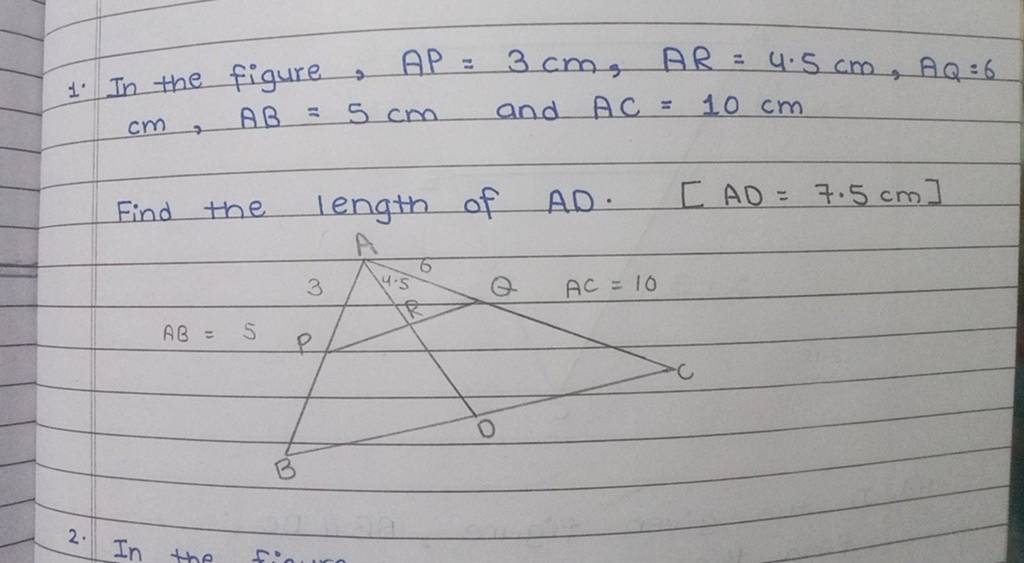 1. In the figure, AP = 3 cm, AR = 4.5 cm, AQ = 6
cm, AB = 5 cm and AC = 10 cm
Find the length of AD. [AD = 7.5 cm]
A
6
3
4.5
Q
AC = 10
R
AB = 5
P
C
D
B
2. In the figure